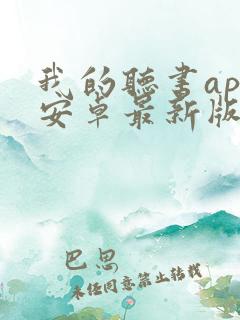 我的聽書ap
安卓最新版
巴思
未经同意禁止转载